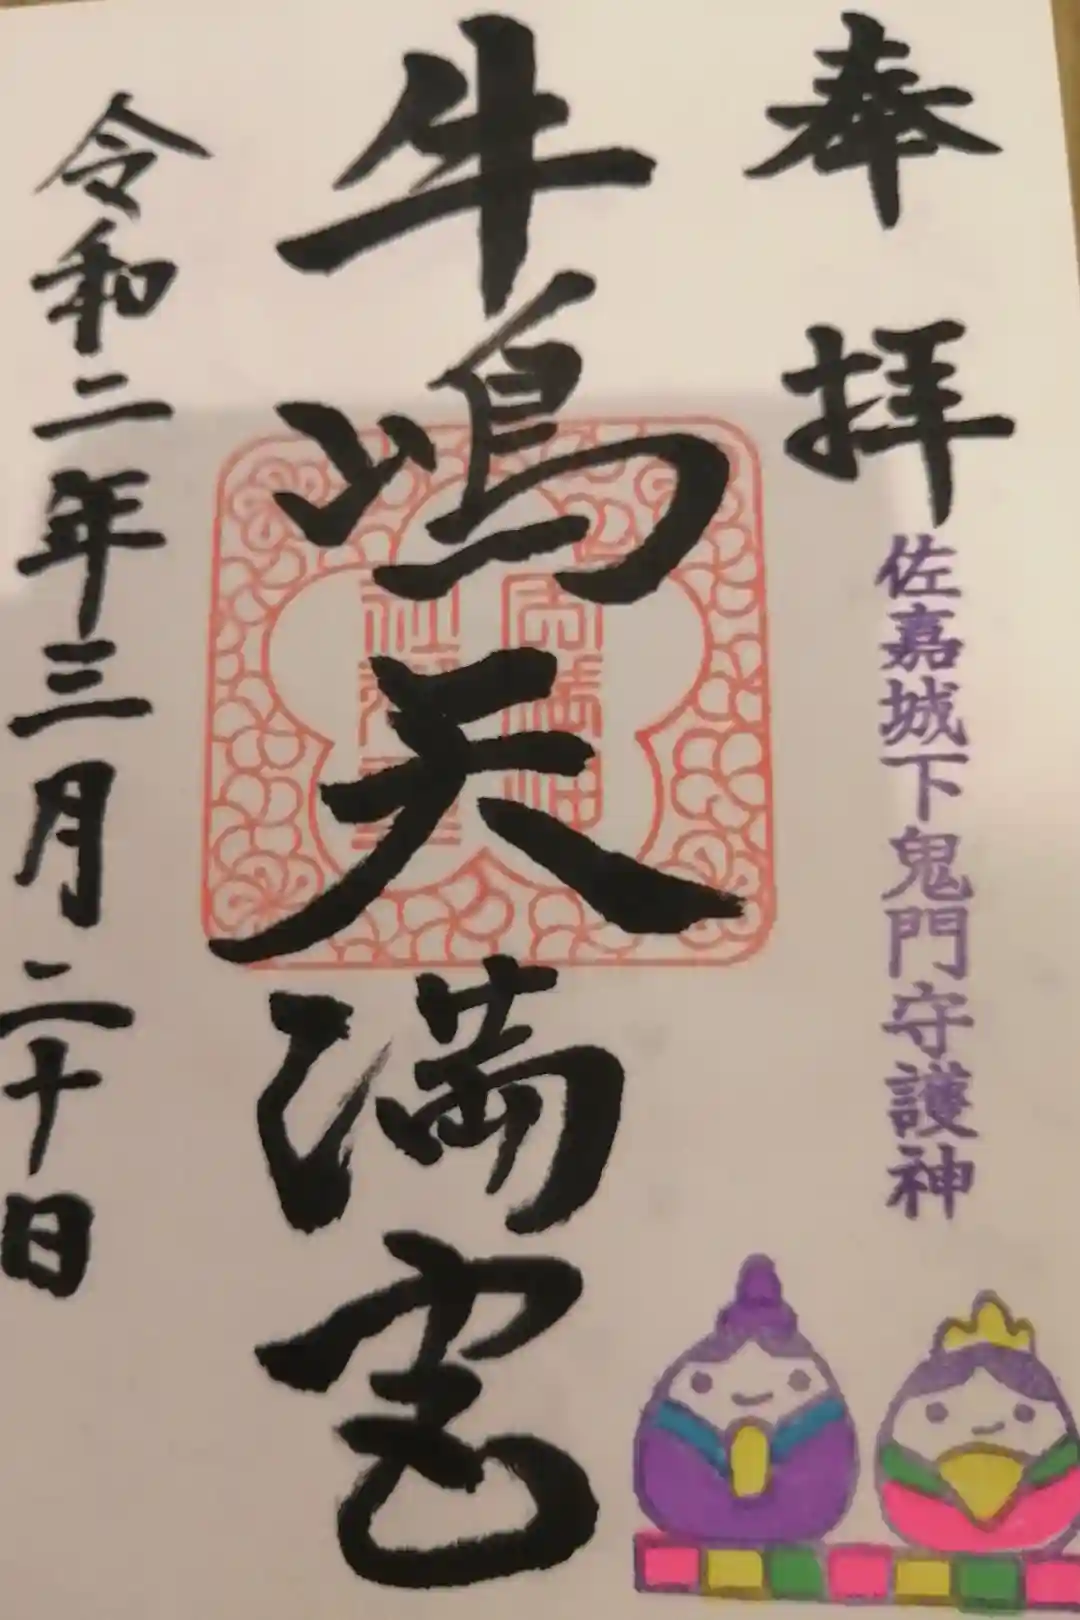 奉拝
佐嘉城下鬼門守護神
牛嶋天満宮
令和二年三月二十日